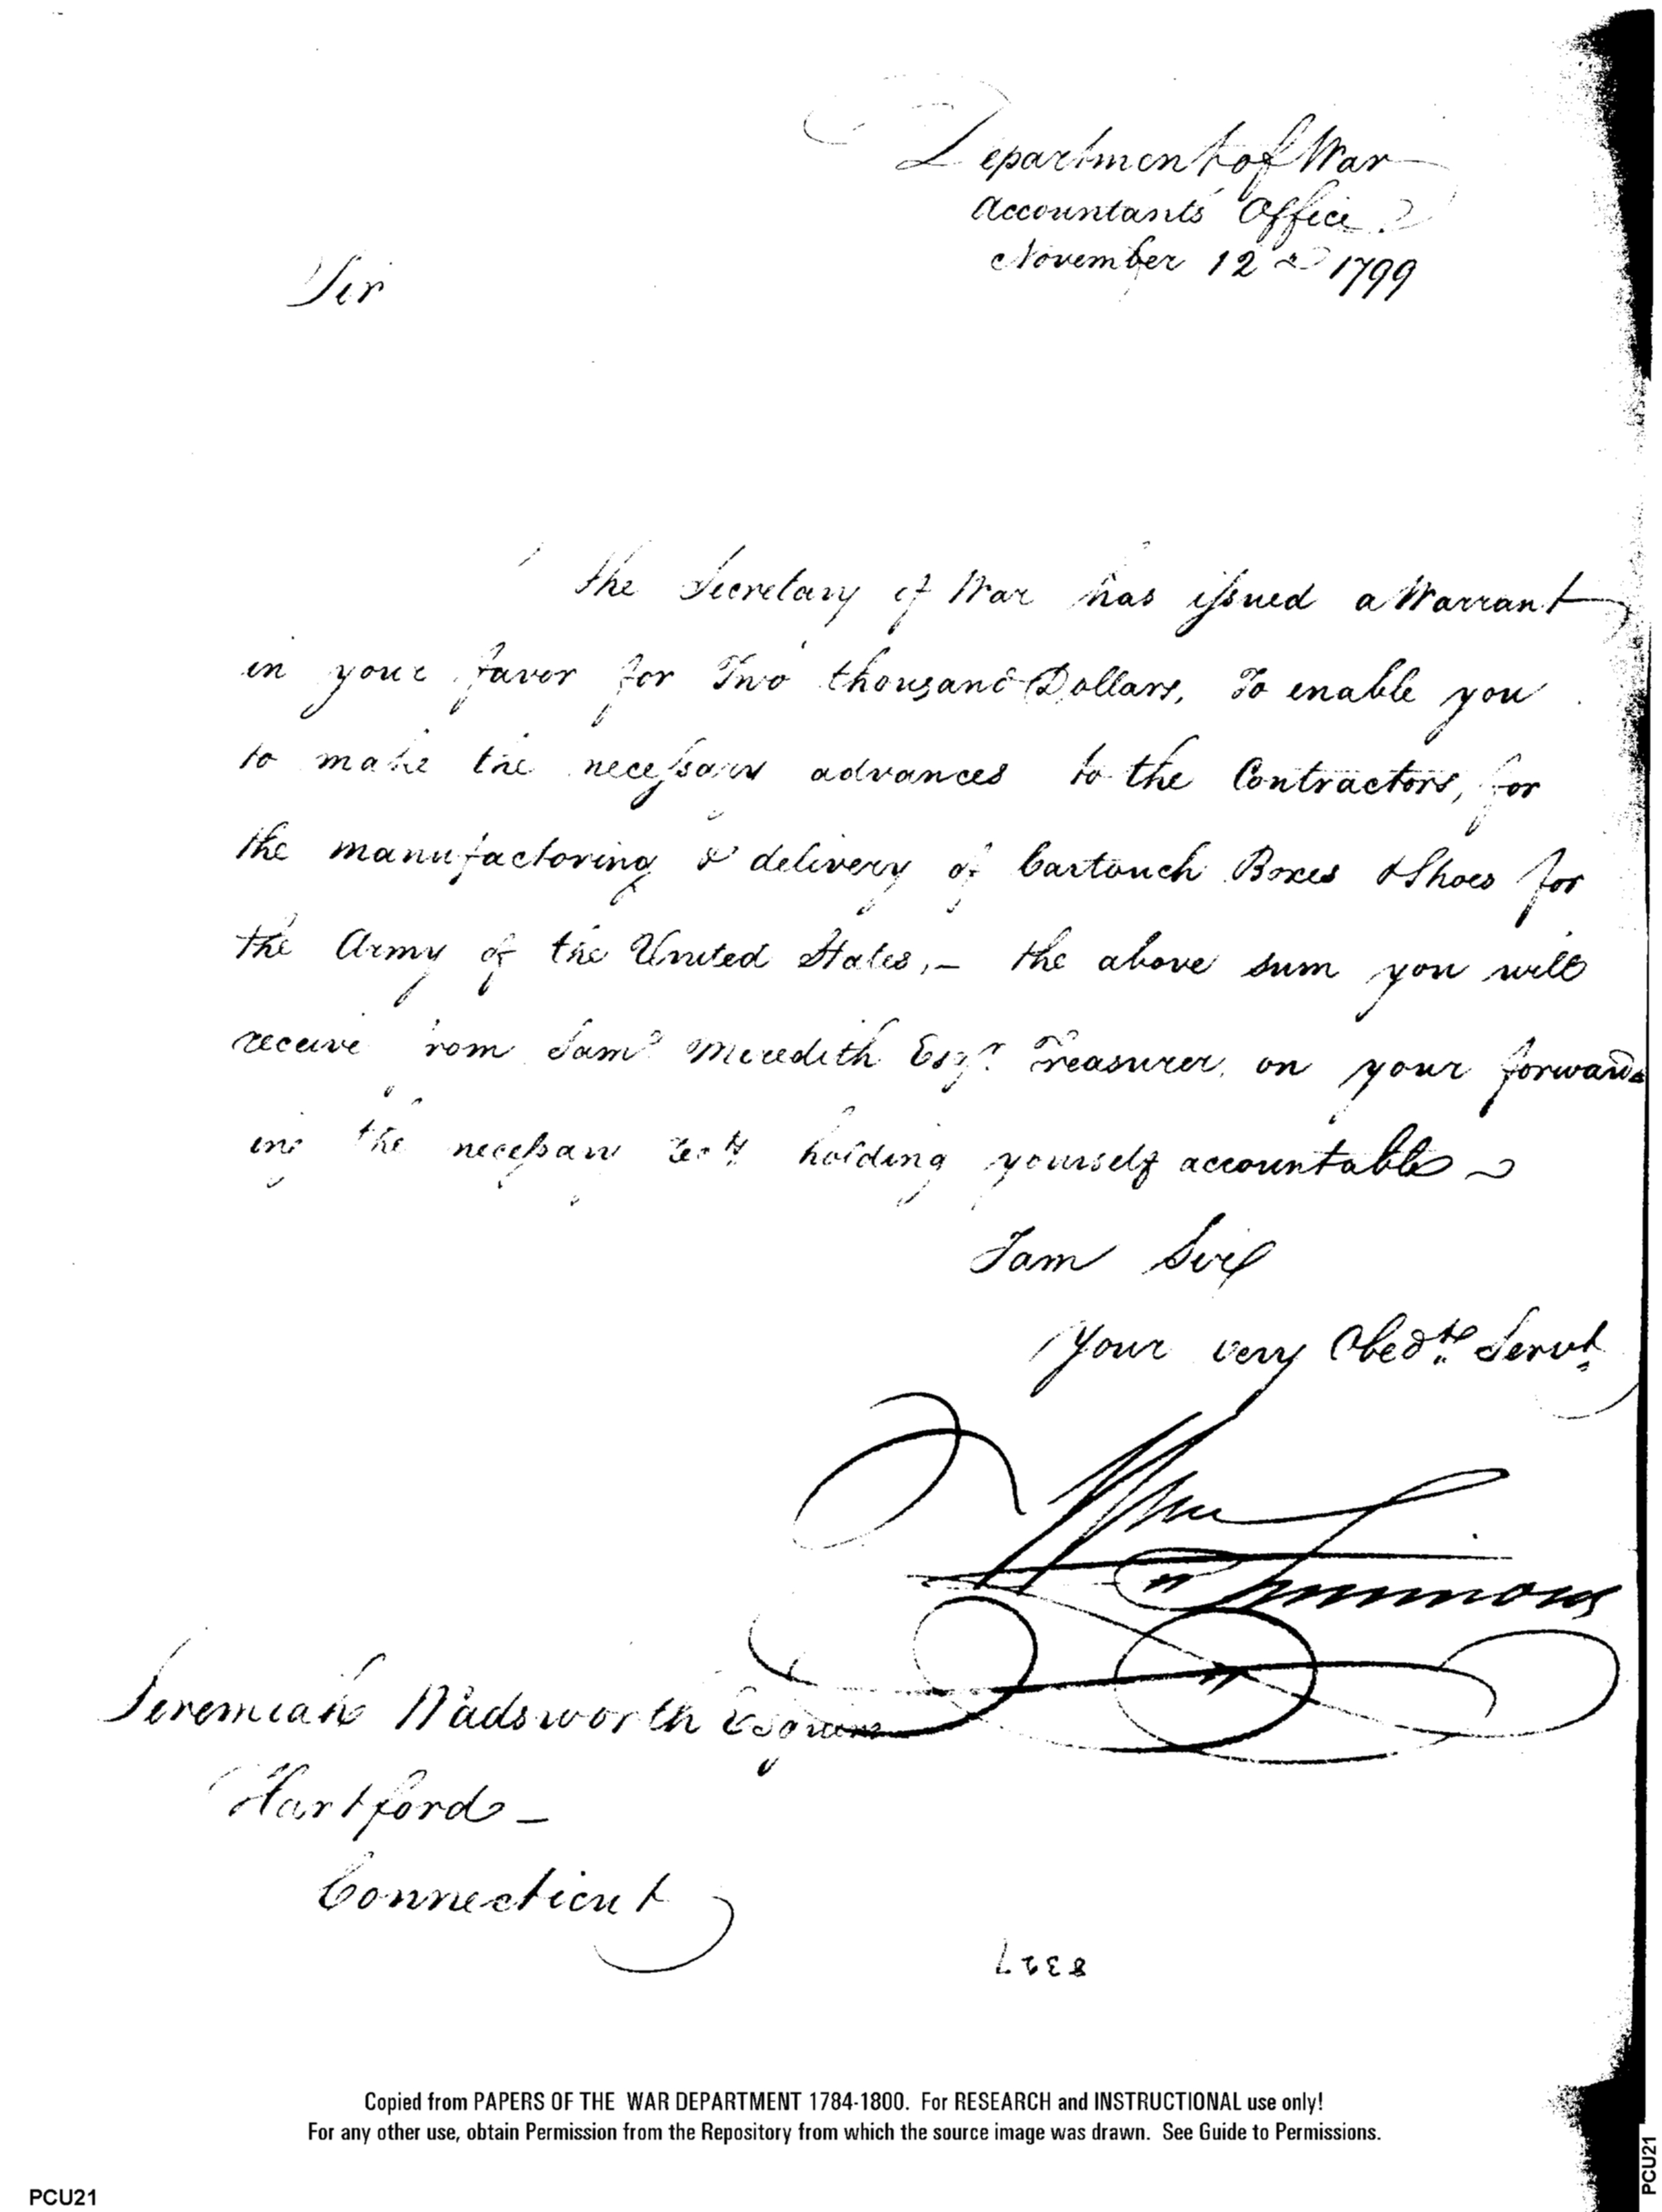 Department of War
Accountants Office
November 12th 1799
Sir
The Secretary of War has issued a Warrant
in your favor for Two thousand Dollars, To enable you
to make the necessary advances to the Contractors, for
the manufactoring & delivery of Cartouch Boxes & Shoes for
the Army of the United States,— the above sum you will
receive from Saml Meredith Esqr. Treasurer, on your forward-
ing the necessary holding yourself accountable
I am Sir
Your very Obedt. Servt.
Wm Simmons
Jeremiah Wadsworth Esquire
Hartford —
Connecticut
PCU21
Copied from PAPERS OF THE WAR DEPARTMENT 1784-1800. For RESEARCH and INSTRUCTIONAL use only!
For any other use, obtain Permission from the Repository from which the source image was drawn. See Guide to Permissions.
PCU21